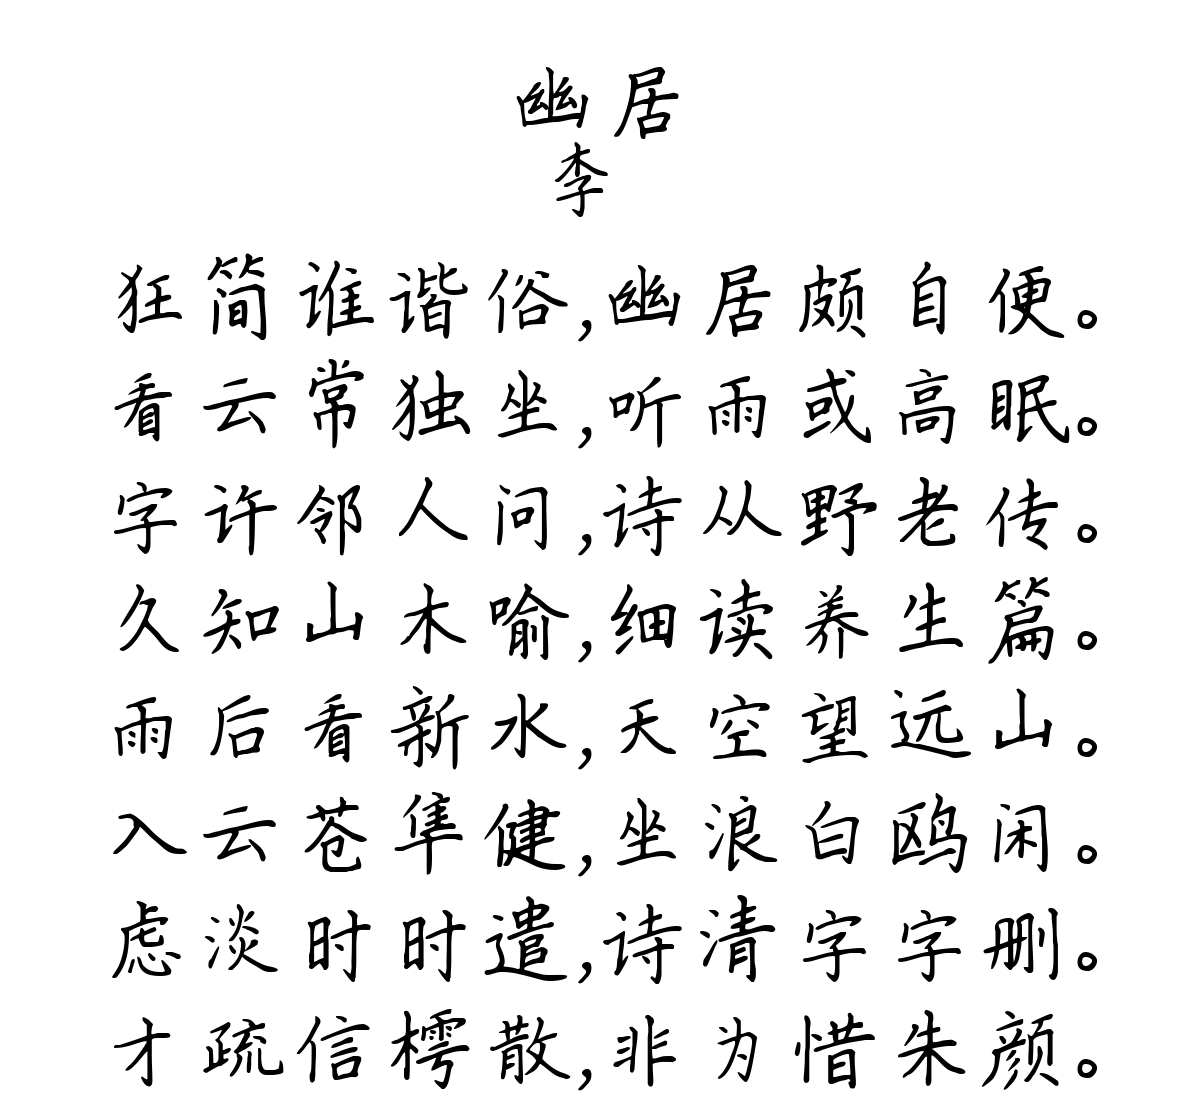 幽居
李
狂简谁谐俗,幽居颇自便。
看云常独坐,听雨或高眠。
字许邻人问,诗从野老传。
久知山木喻,细读养生篇。
雨后看新水,天空望远山。
入云苍隼健,坐浪白鸥闲。
虑淡时时遣,诗清字字删。
才疏信樗散,非为惜朱颜。